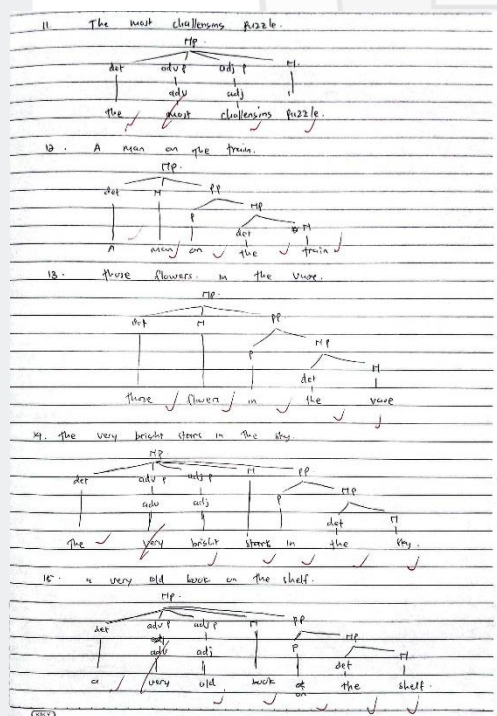 11. The most challenging puzzle.
NP.
det adv p adj p N.
adv adj
the most challenging puzzle.
12. A man on the train.
NP.
det N PP
P NP
det N
A man on the train
13. those flowers in the vase.
NP.
det N PP
P NP
det N
those flowers in the vase
14. The very bright stars in the sky.
NP
det adv p adj p N PP
adv adj P NP
det N
The very bright stars in the sky.
15. a very old book on the shelf.
NP.
det adv p adj p N PP
adv adj P NP
det N
a very old book on the shelf.